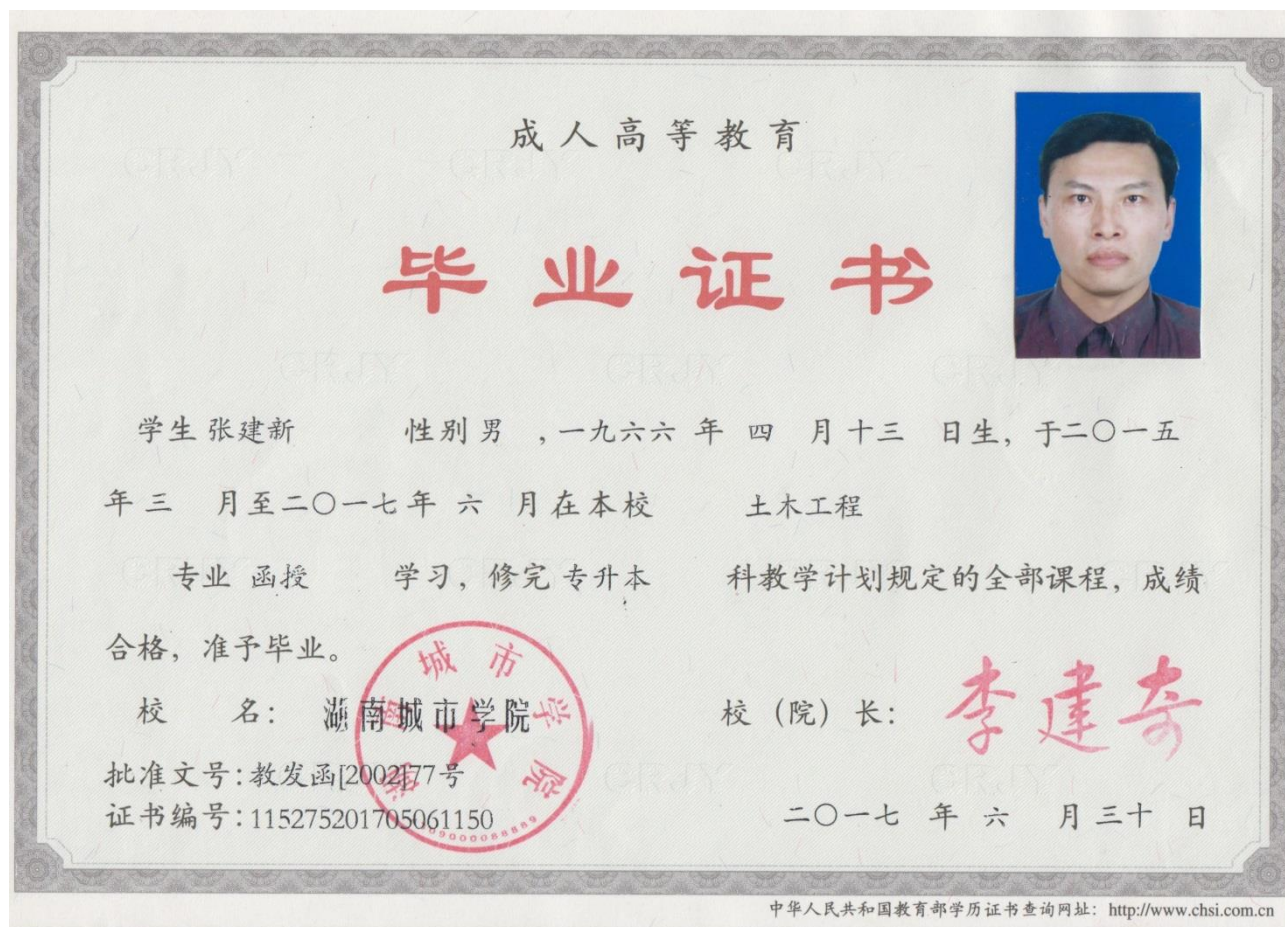 成人高等教育
毕业证书
学生 张建新 性别 男 ,一九六六 年 四 月 十三 日生, 于二〇一五
年 三 月至二〇一七 年 六 月在本校 土木工程
专业 函授 学习, 修完 专升本 科教学计划规定的全部课程, 成绩
合格, 准予毕业。
校 名: 湖南城市学院 校 (院) 长: 李建奇
湖南城市学院
批准文号: 教发函[2002]77号
证书编号: 115275201705061150
二〇一七 年 六 月 三十 日
中华人民共和国教育部学历证书查询网址: http://www.chsi.com.cn